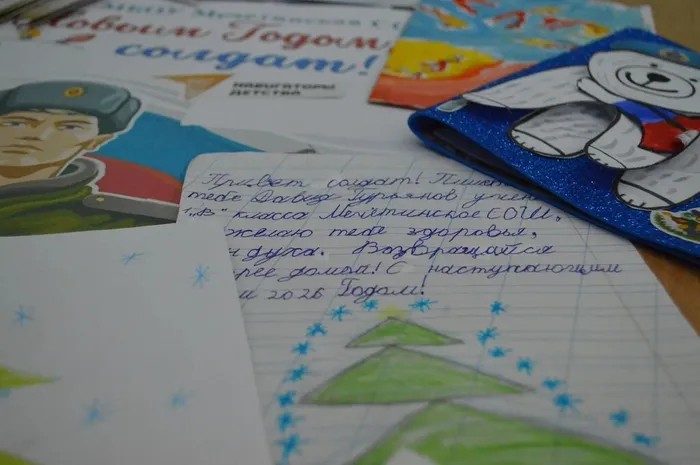 МБОУ Мечетинская С
Новым Годом,
солдат!
НАВИГАТОРЫ
ДЕТСТВА
Привет солдат! Пишет
тебе Давид Гурьянов учени
"В" класса Мечетинское СОШ.
желаю тебе здоровья,
духа. Возвращайся
рее домой! С наступающим
и 2026 Годом!